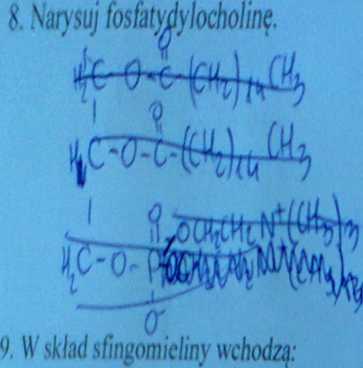 8. Narysuj fosfatydylocholinę.
O
H₂C-O-C-(CH₂)₁₄CH₃
O
HC-O-C-(CH₂)₁₄CH₃
O OCH₂CH₂N⁺(CH₃)₃
H₂C-O-P
O⁻
9. W skład sfingomieliny wchodzą: